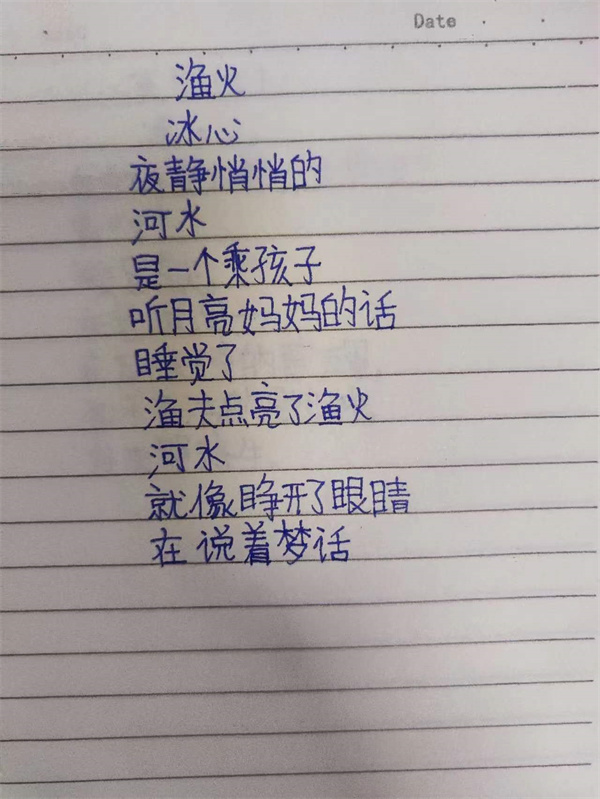 Date
渔火
冰心
夜静悄悄的
河水
是一个乘孩子
听月亮妈妈的话
睡觉了
渔夫点亮了渔火
河水
就像睁开了眼睛
在说着梦话